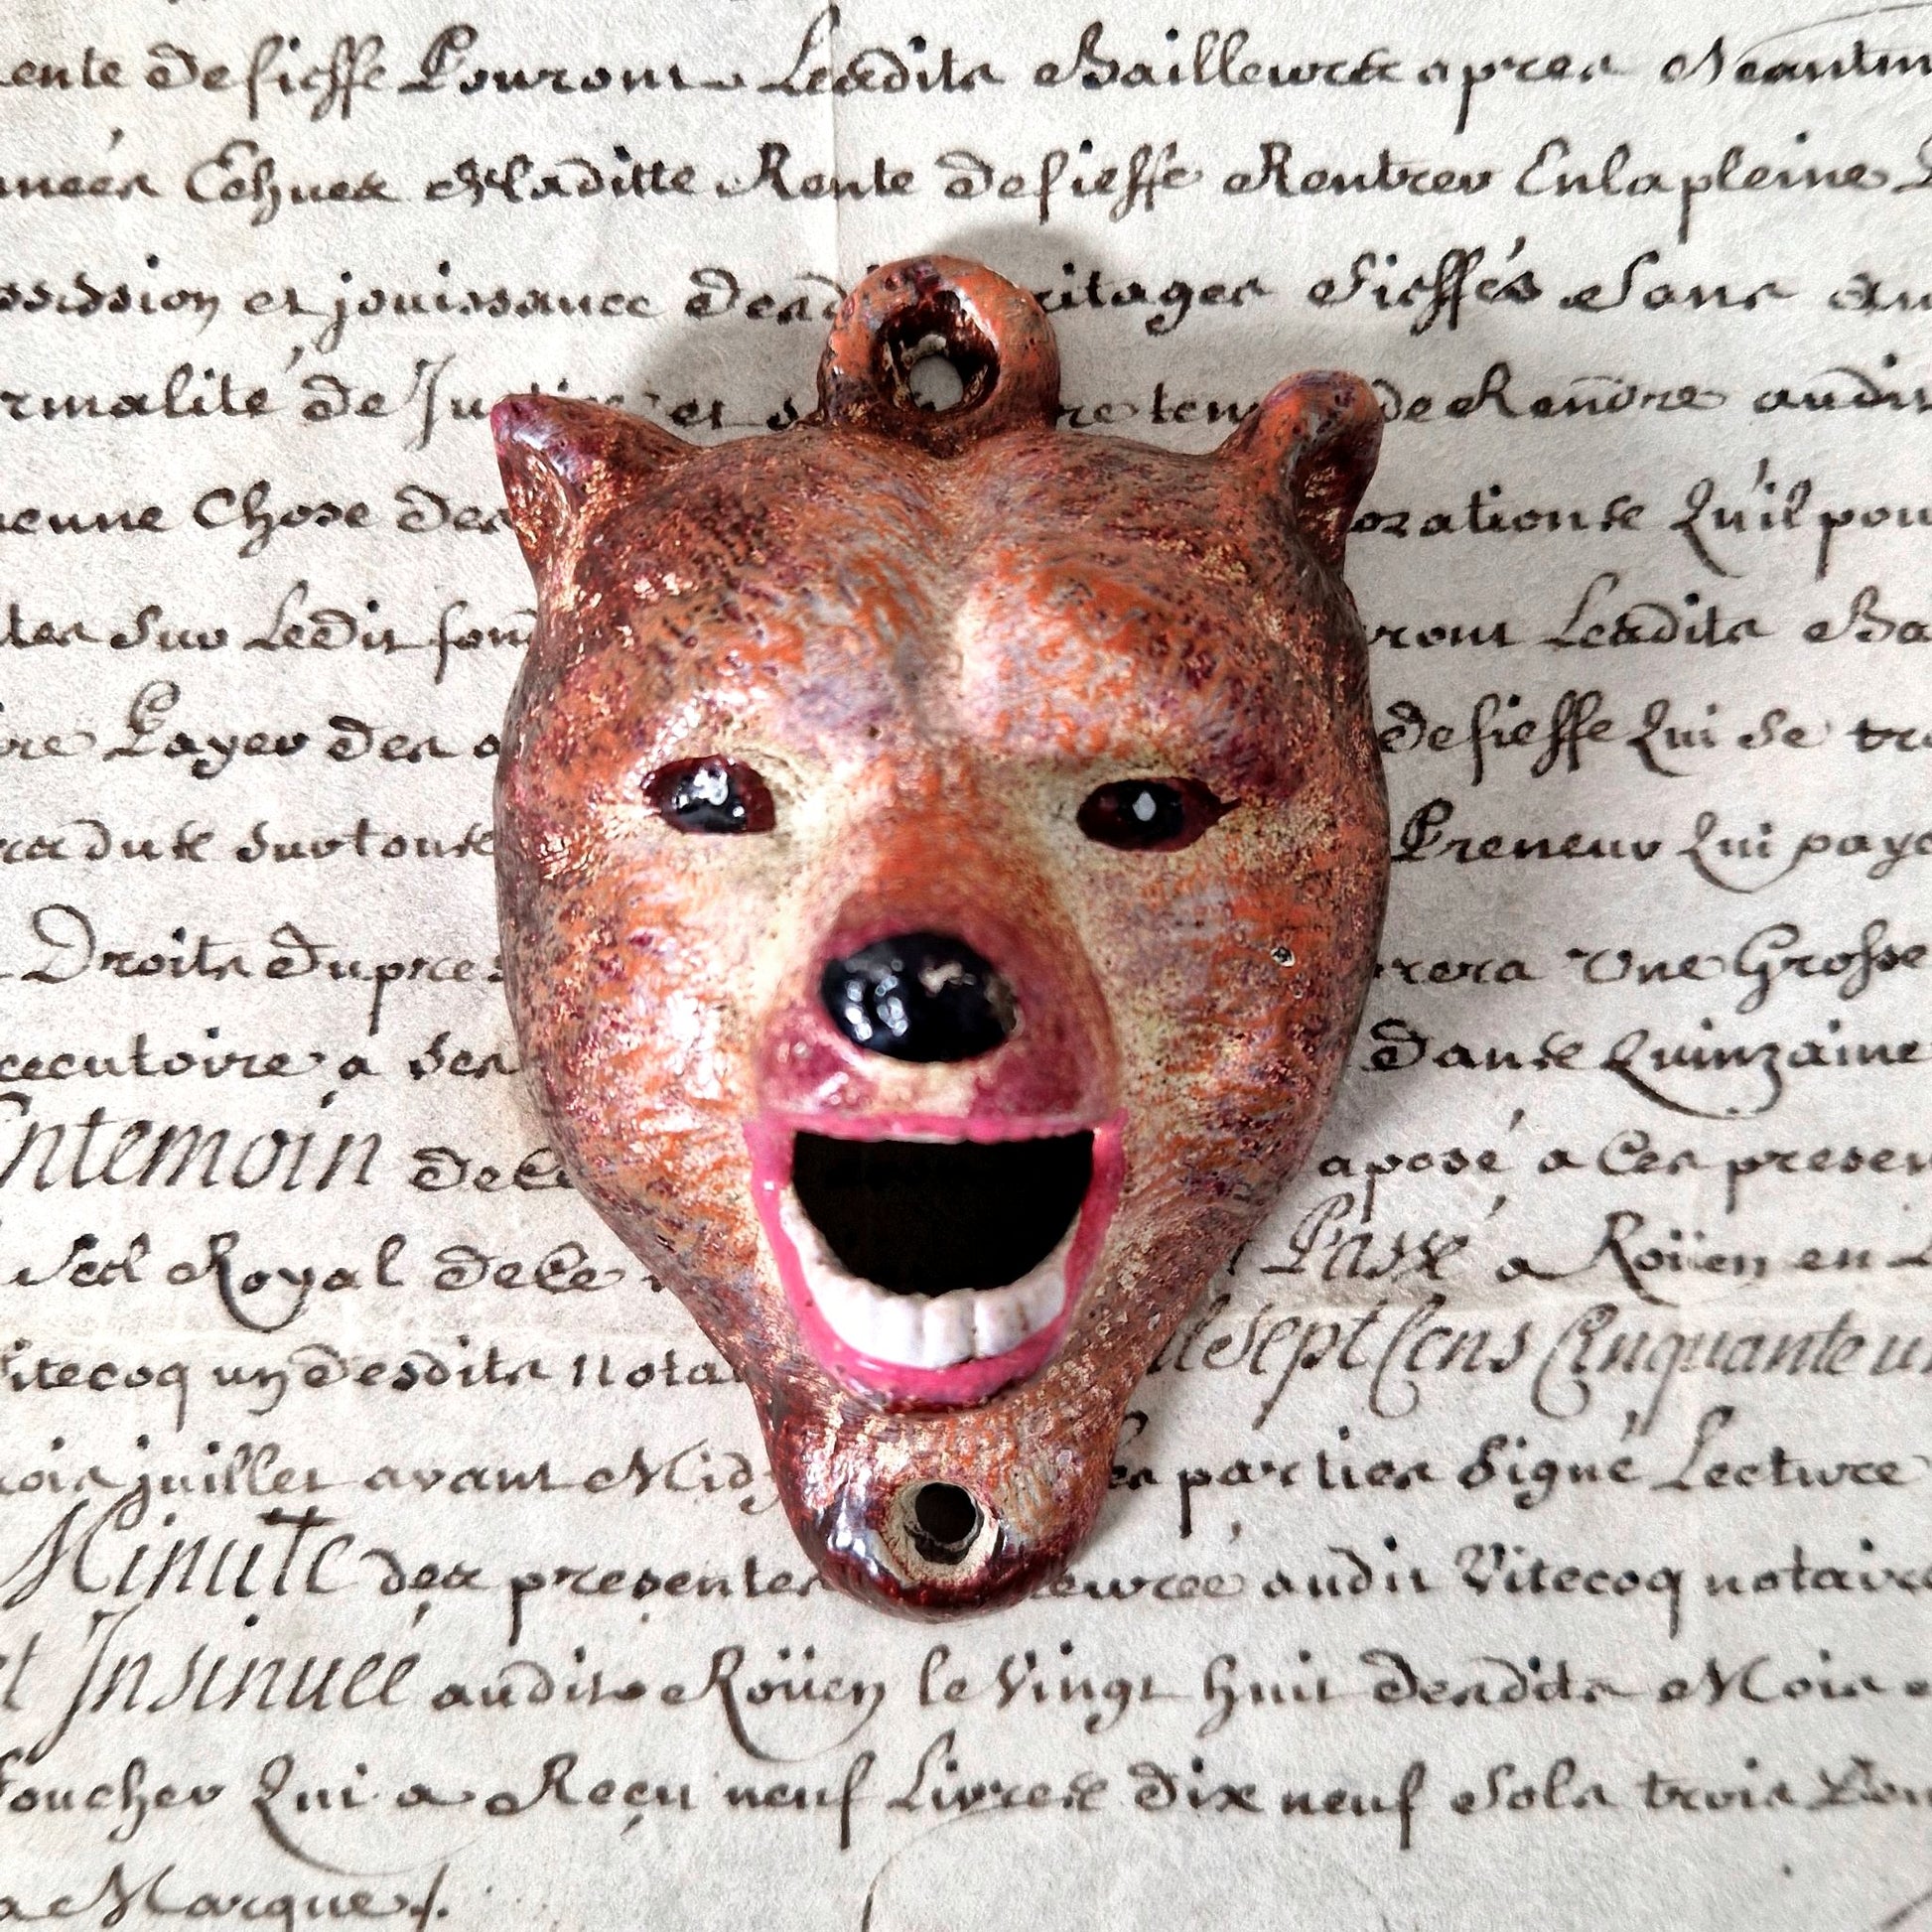 ente de fieffe Pouront Lesdits Bailleurs apres
nnées Echues de Laditte Rente de fieffe Rentrer En la pleine
ssession et jouissance desd ritages fieffés Sans
rmalité de Justice et s re tenu de Rendre audit
cune Chose des orations Qu'il pou
tes Sur Ledit fond ront Lesdits Ba
re Payer des a de fieffe Qui se tro
dus Surtous Preneur Qui paye
Droits du pres rera Une Grosse
xecutoire a ses dans Quinzaine
Entemoin de Ce aposé a Ces presen
Scel Royal de Ce Passé a Roüen en
itecoq un desdits Nota lesept Cens Cinquante u
ois juillet avant Midy les parties Signé Lecture
Minute des presentes eurée audit Vitecoq notaire
et Insinuée audit Roüen le Vingt huit desdits Mois
oucher Qui a Reçu neuf Livres dix neuf Sols trois
a Marque